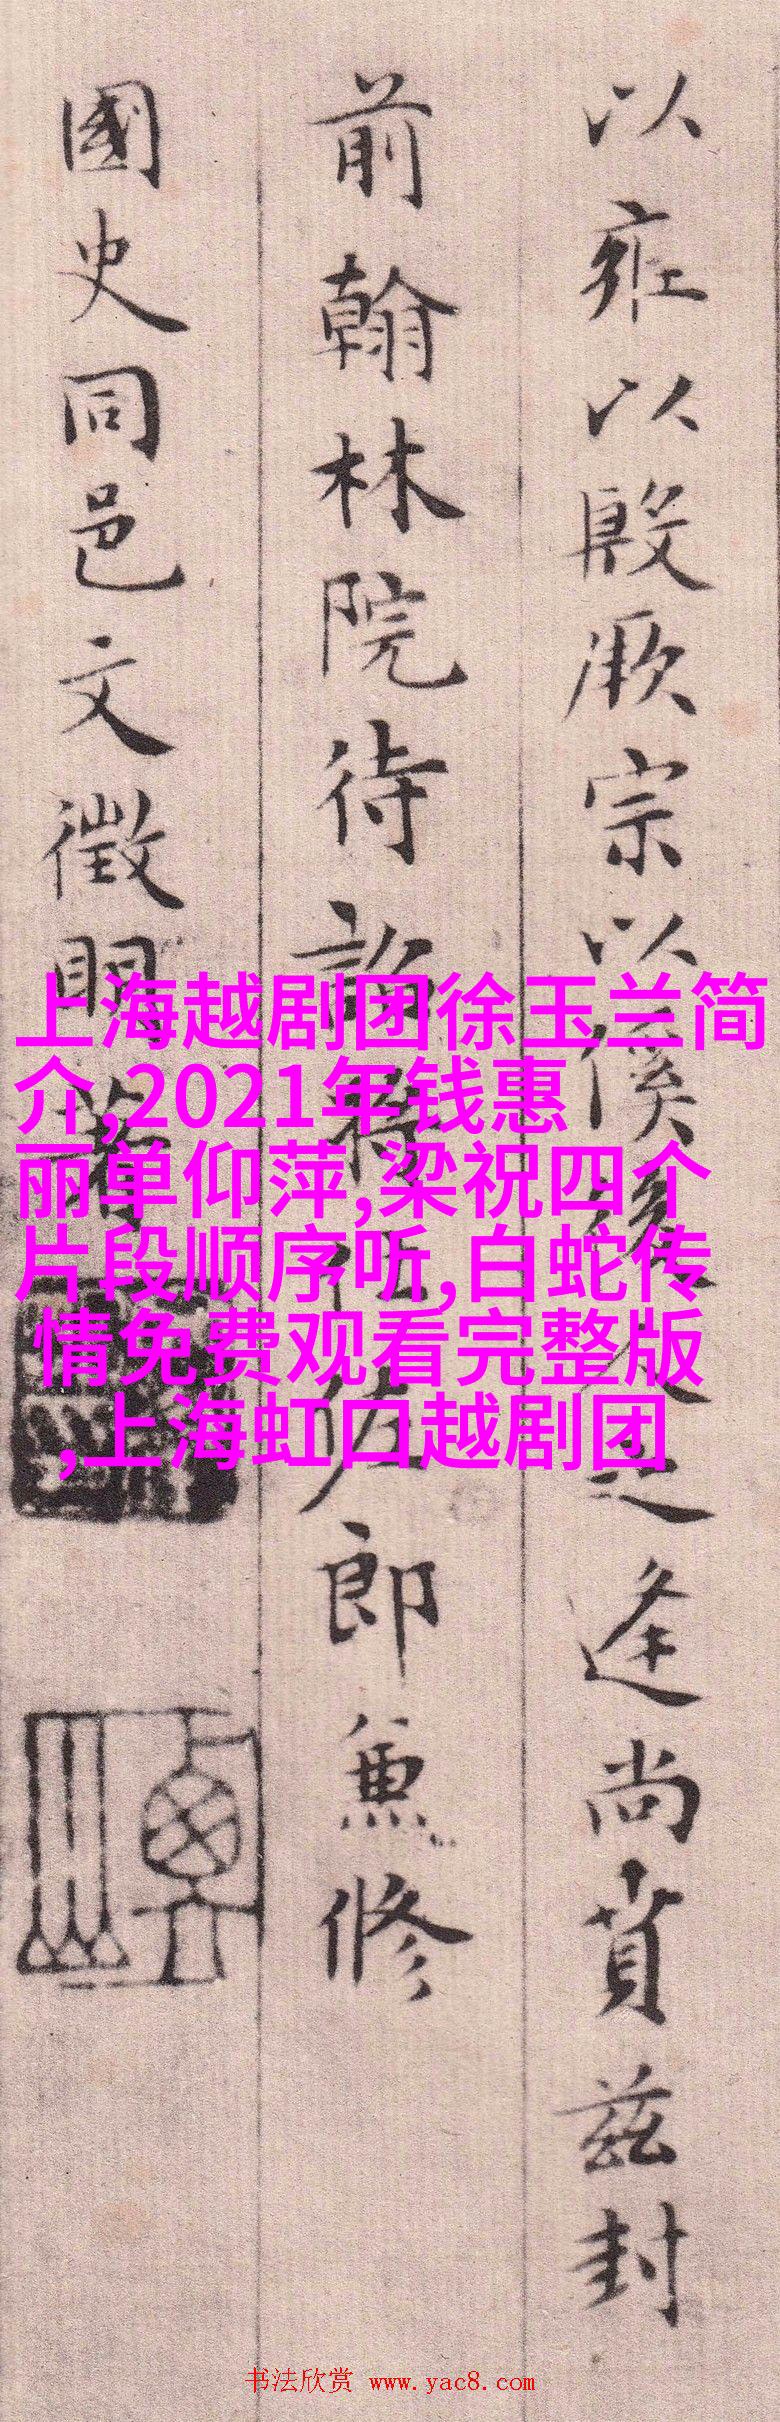 以雍以殷厥宗以徯後人之逢尚賁茲封
前翰林院待詔將仕佐郎兼修
國史同邑文徵明著
上海越剧团徐玉兰简
介,2021年钱惠
丽单仰萍,梁祝四个
片段顺序听,白蛇传
情免费观看完整版
,上海虹口越剧团
书法欣赏 www.yac8.com